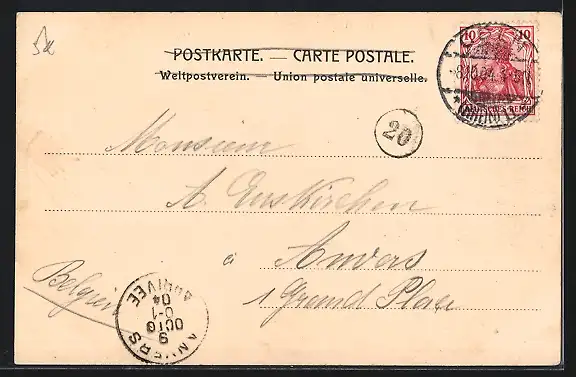 POSTKARTE. — CARTE POSTALE.
Weltpostverein. — Union postale universelle.
10 10
DEUTSCHES REICH
20
Monsieur
A. Euskirchen
à Anvers
1 Grand Place
Belgien
ANVERS
9
OCTO
0-1
04
ARRIVÉE